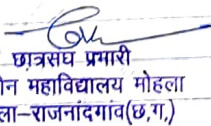 छात्रसंघ प्रभारी
न महाविद्यालय मोहला
ला-राजनांदगांव(छ,ग,)